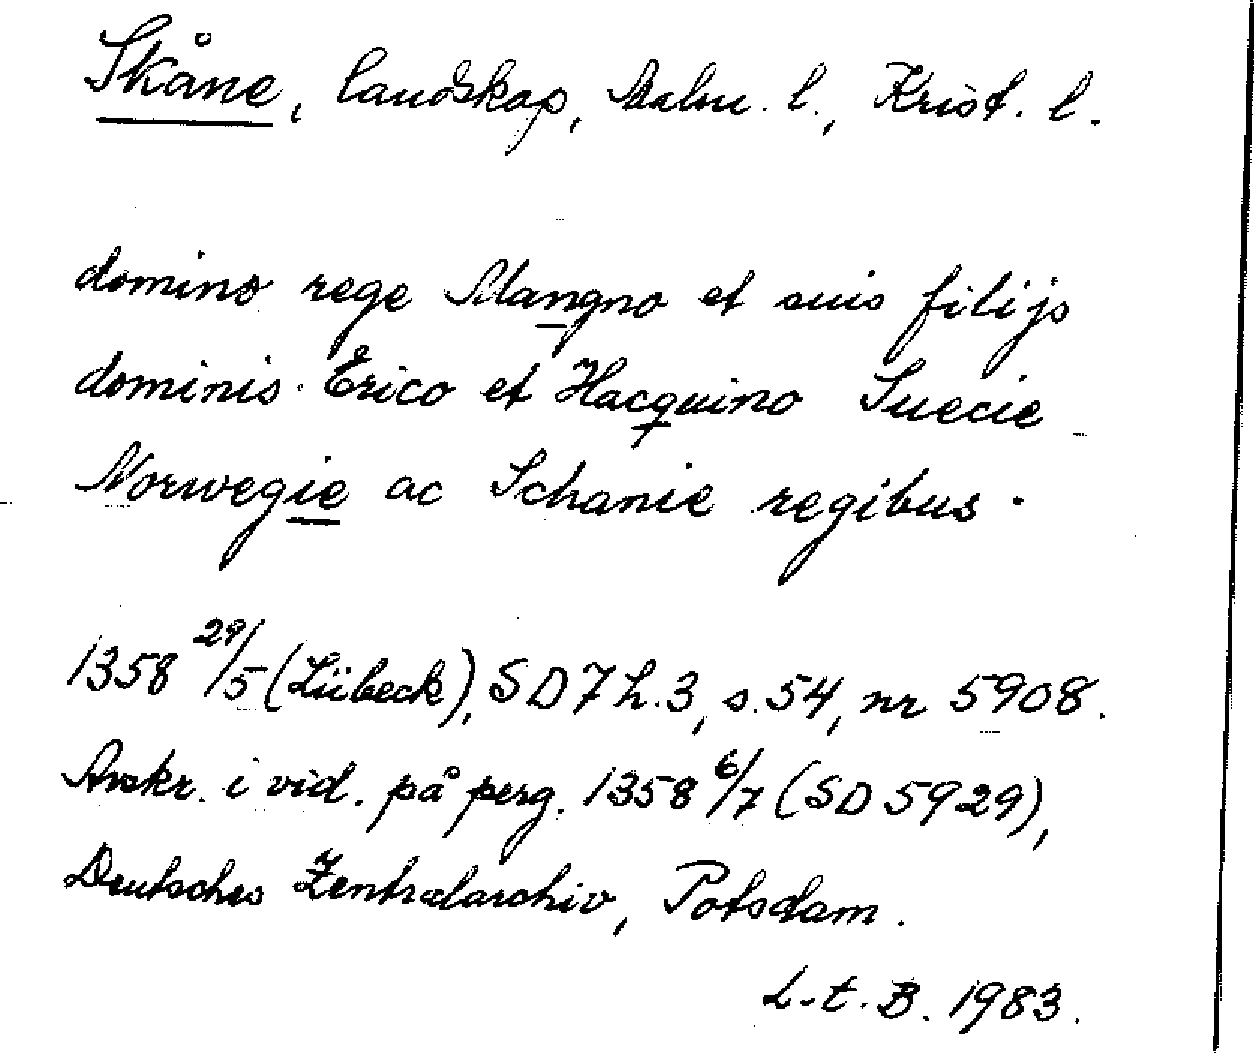 Skåne, landskap, Malm. l., Krist. l.
domino rege Mangno et suis filijs
dominis Erico et Hacquino Suecie
Norwegie ac Schanie regibus.
1358 29/5 (Lübeck), SD 7 h. 3, s. 54, nr 5908.
Avskr. i vid. på perg. 1358 6/7 (SD 5929),
Deutsches Zentralarchiv, Potsdam.
L.t.B. 1983.